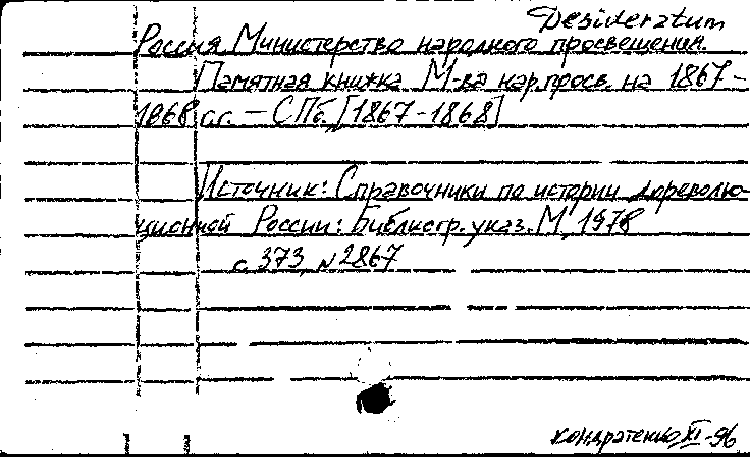 Desideratum
Россия Министерство народного просвещения.
Памятная книжка М-ва нар. просв. на 1867-
1868 г.г. — СПб. [1867-1868]
Источник: Справочники по истории дореволю-
ционной России: Библиогр. указ. М, 1978
с. 373, № 2867
Кондратенко XI-96